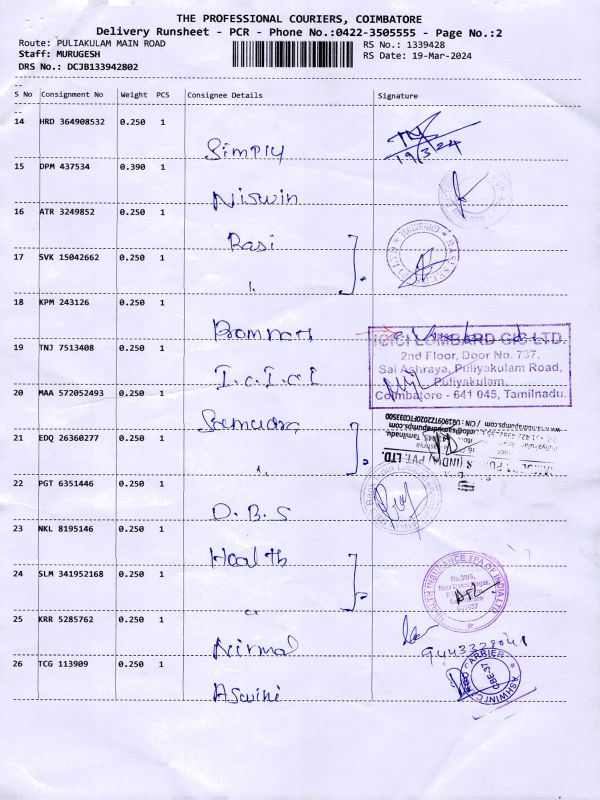 THE PROFESSIONAL COURIERS, COIMBATORE
Delivery Runsheet - PCR - Phone No.:0422-3505555 - Page No.:2
Route: PULIAKULAM MAIN ROAD
RS No.: 1339428
Staff: MURUGESH
RS Date: 19-Mar-2024
DRS No.: DCJB133942802
S No Consignment No Weight PCS Consignee Details Signature
14 HRD 364908532 0.250 1
Simply
19/3/24
15 DPM 437534 0.390 1
Niswin
16 ATR 3249852 0.250 1
Rasi
17 SVK 15042662 0.250 1
18 KPM 243126 0.250 1
19 TNJ 7513408 0.250 1
I.C.I.C.I
ICICI LOMBARD GIC LTD.
2nd Floor, Door No. 737,
Sai Ashraya, Puliyakulam Road,
Puliyakulam,
Coimbatore - 641 045, Tamilnadu.
20 MAA 572052493 0.250 1
Samudra
21 EDQ 26360277 0.250 1
(INDIA) PVT. LTD.
22 PGT 6351446 0.250 1
D.B.S
23 NKL 8195146 0.250 1
Health
24 SLM 341952168 0.250 1
HEALTH INSURANCE TPA OF INDIA LTD
25 KRR 5285762 0.250 1
Nirmal
9443328041
26 TCG 113909 0.250 1
Aswini
ASHWINI CARGO CARRIER
CBE-37